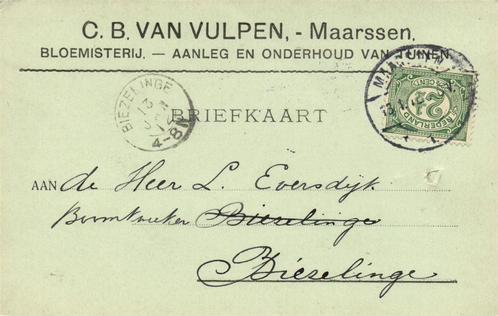 C. B. VAN VULPEN, - Maarssen,
BLOEMISTERIJ. — AANLEG EN ONDERHOUD VAN TUINEN.
BRIEFKAART
BIEZELINGE
4-8N
MAARSSEN
NEDERLAND
2½
CENT
AAN de Heer L. Eversdijk
Boomkweker Biezelinge
Biezelinge